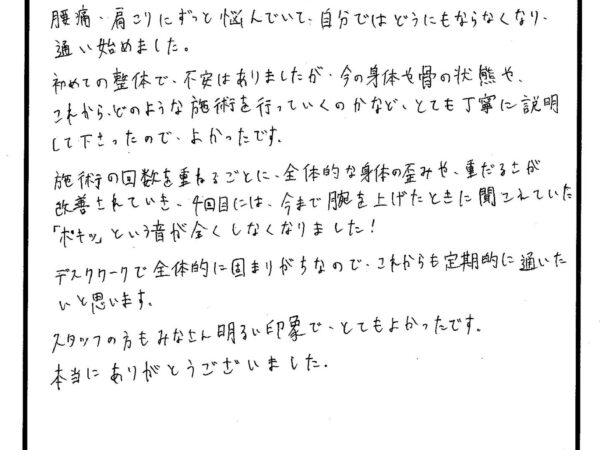 腰痛・肩こりにずっと悩んでいて、自分ではどうにもならなくなり、
通い始めました。
初めての整体で、不安はありましたが、今の身体や骨の状態や、
これから、どのような施術を行っていくのかなど、とても丁寧に説明
して下さったので、よかったです。
施術の回数を重ねるごとに、全体的な身体の歪みや、重だるさが
改善されていき、4回目には、今まで腕を上げたときに聞こえていた
「ポキッ」という音が全くしなくなりました！
デスクワークで全体的に固まりがちなので、これからも定期的に通いた
いと思います。
スタッフの方もみなさん明るい印象で、とてもよかったです。
本当にありがとうございました.